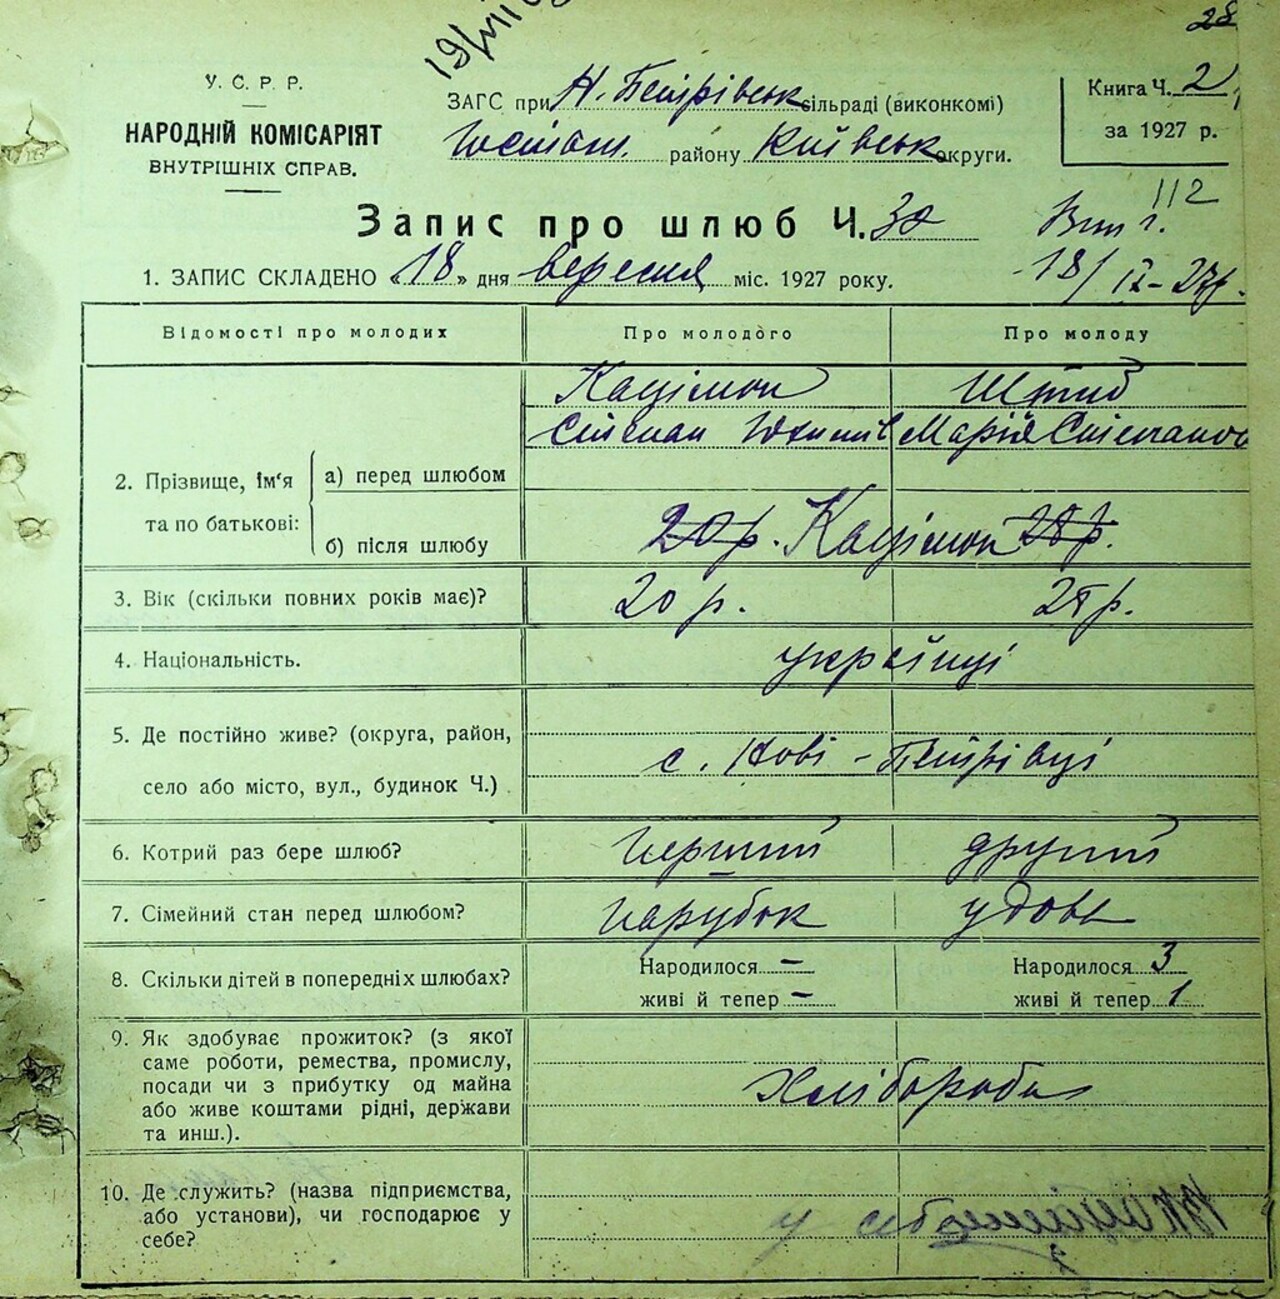 28
19/VII
У. С. Р. Р.
НАРОДНІЙ КОМІСАРІЯТ
ВНУТРІШНІХ СПРАВ.
ЗАГС при Н. Петрівськ сільраді (виконкомі)
району Київськ округи.
Книга Ч. 2
за 1927 р.
112
Запис про шлюб Ч. 38
1. ЗАПИС СКЛАДЕНО «18» дня вересня міс. 1927 року.
18/IX-27р.
Відомості про молодих Про молодого Про молоду
Кацімон Штиб
Степан Юхимів Марія Степанов
2. Прізвище, ім'я та по батькові:
а) перед шлюбом
б) після шлюбу
20р. Кацімон 28р.
3. Вік (скільки повних років має)? 20 р. 28 р.
4. Національність. українці
5. Де постійно живе? (округа, район,
село або місто, вул., будинок Ч.)
с. Нові-Петрівці
6. Котрий раз бере шлюб? перший другий
7. Сімейний стан перед шлюбом? парубок удова
8. Скільки дітей в попередніх шлюбах?
Народилося - Народилося 3
живі й тепер - живі й тепер 1
9. Як здобуває прожиток? (з якої
саме роботи, ремества, промислу,
посади чи з прибутку од майна
або живе коштами рідні, держави
та инш.).
хлібороби
10. Де служить? (назва підприємства,
або установи), чи господарює у
себе?
у себе